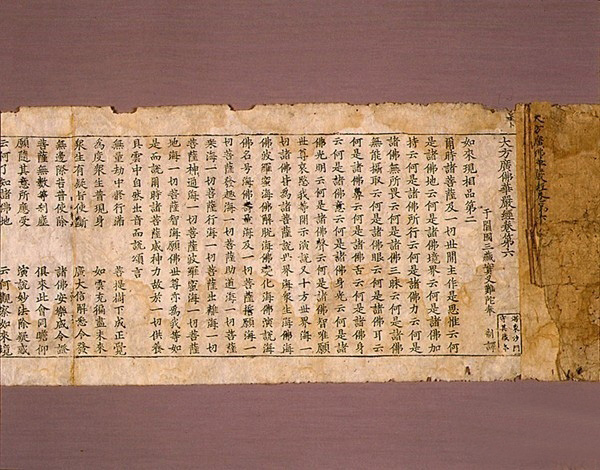 大方廣佛華嚴經卷第六
于闐國三藏實叉難陀奉 制譯
如來現相品第二
爾時諸菩薩及一切世間主作是思惟云何
是諸佛地云何是諸佛境界云何是諸佛加
持云何是諸佛所行云何是諸佛力云何是
諸佛無所畏云何是諸佛三昧云何是諸佛
無能攝取云何是諸佛眼云何是諸佛耳云
何是諸佛鼻云何是諸佛舌云何是諸佛身
云何是諸佛意云何是諸佛身光云何是諸
佛光明云何是諸佛聲云何是諸佛智唯願
世尊哀愍我等開示演說又十方世界海一
切諸佛皆為諸菩薩說世界海眾生海
佛波羅蜜海佛解脫海佛變化海佛演說海
佛名号海佛壽量海及一切菩薩誓願海一
切菩薩發趣海一切菩薩助道海一切菩薩
乘海一切菩薩行海一切菩薩出離海一切
菩薩神通海一切菩薩波羅蜜海一切菩薩
地海一切菩薩智海願佛世尊亦為我等如
是而說爾時諸菩薩威神力故於一切供養
具雲中自然出音而說頌言
無量劫中修行滿 菩提樹下成正覺
為度眾生普現身 如雲充徧盡未來
眾生有疑皆使斷 廣大信解悉令發
無邊際苦普使除 諸佛安樂咸令證
菩薩無數等剎塵 俱來此會同瞻仰
願隨其意所應受 演說妙法除疑惑
云何了知諸佛地 云何觀察如來境
海東沙門
守其藏本
大方廣佛華嚴經卷第六